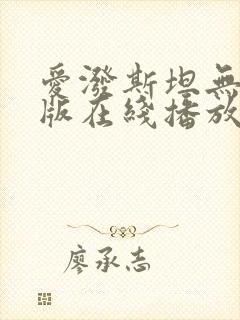 愛潑斯坦無
版在綫播放
廖承志